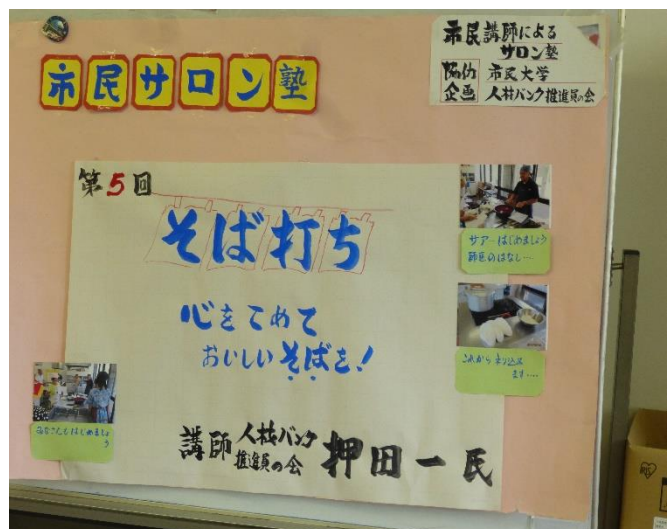 市民サロン塾
市民講師による
サロン塾
市民大学
企画
人材バンク推進員の会
第5回
そば打ち
心をこめて
おいしいそばを!
講師
人材バンク
推進員の会
押田一民
サアーはじめましょう
師匠のはなし…
これから
ます…
みなさんもはじめましょ
う